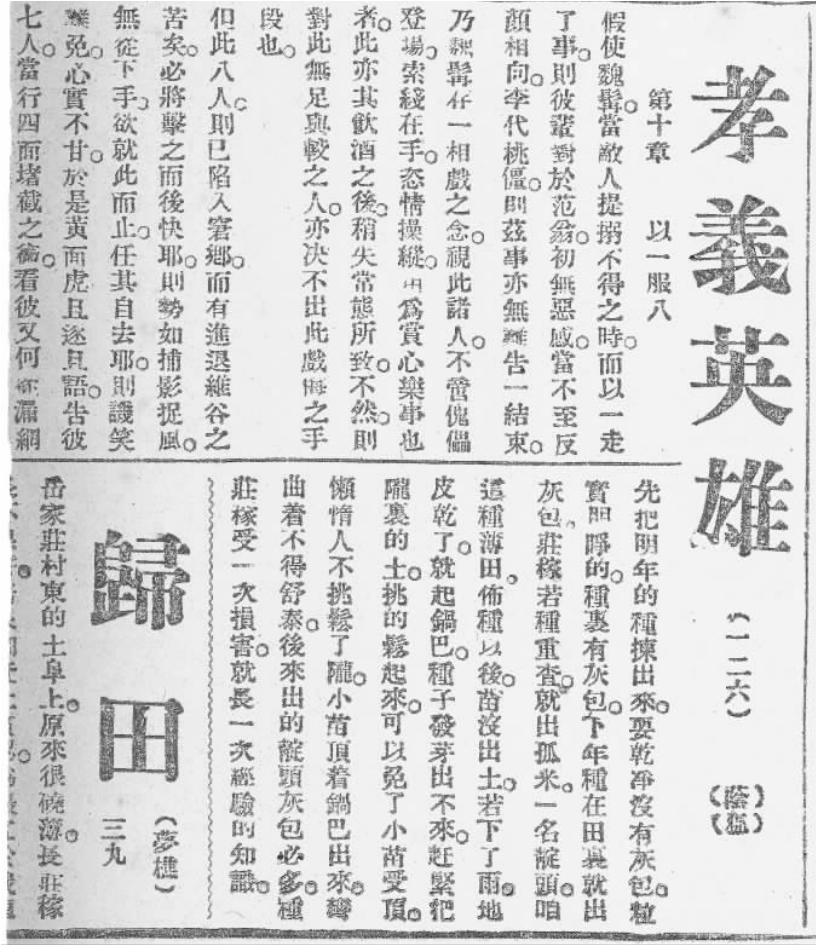 孝義英雄
(一二六)
(蔭)
(猛)
第十章　以一服八
假使魏髯。當敵人提搦不得之時。而以一走
了事。則彼輩對於范翁。初無惡感。當不至反
顏相向。李代桃僵。則茲事亦無難告一結束。
乃魏髯存一相戲之念。視此諸人。不啻傀儡
登場。索綫在手。恣情操縱。用爲賞心樂事也
者。此亦其飲酒之後。稍失常態所致。不然。則
對此無足與較之人。亦决不出此戲侮之手
段也。
但此八人。則已陷入窘鄉。而有進退維谷之
苦矣。必將擊之而後快耶。則勢如捕影捉風。
無從下手。欲就此而止。任其自去耶。則譏笑
難免。心實不甘。於是黃面虎且逐且語。告彼
七人。當行四面堵截之術。看彼又何漏網
歸田
(夢樵)
三九
先把明年的種揀出來。要乾淨沒有灰包。粒
實的。種裏有灰包。下年種在田裏就出
灰包。莊稼若種重查。就出孤米。一名靛頭。咱
這種薄田。佈種以後。苗沒出土。若下了雨。地
皮乾了。就起鍋巴。種子發芽出不來。赶緊把
隴裏的土。挑的鬆起來。可以免了小苗受頂。
懶惰人不挑鬆了隴。小苗頂着鍋巴出來。彎
曲着不得舒泰。後來出的靛頭灰包必多。種
莊稼受一次損害。就長一次經驗的知識。
岳家莊村東的土阜上。原來很磽薄。長莊稼